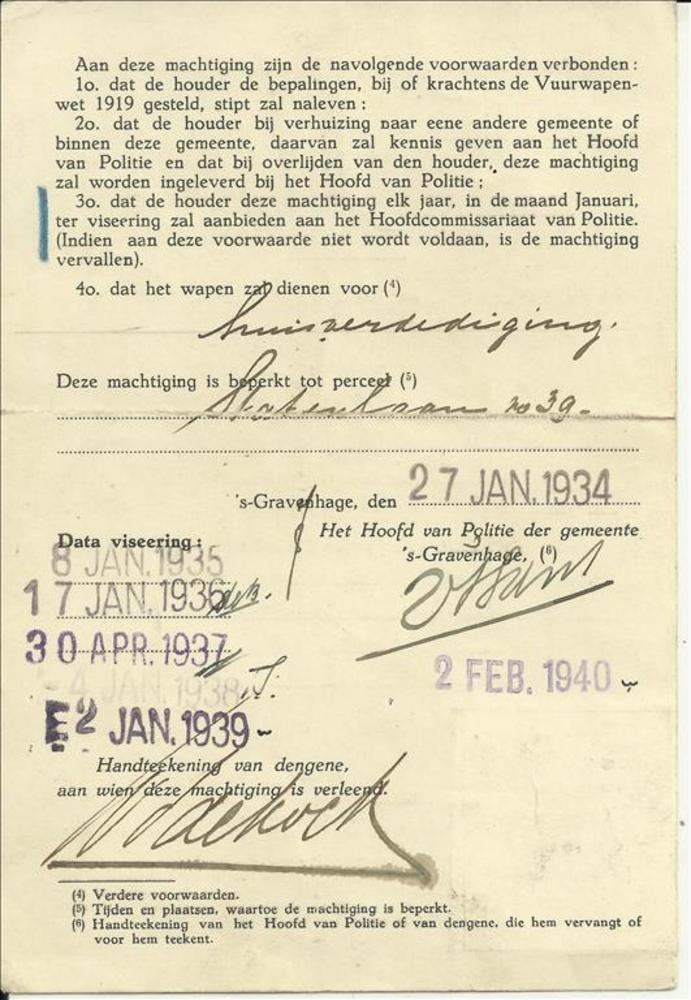 Aan deze machtiging zijn de navolgende voorwaarden verbonden :
1o. dat de houder de bepalingen, bij of krachtens de Vuurwapen-
wet 1919 gesteld, stipt zal naleven :
2o. dat de houder bij verhuizing naar eene andere gemeente of
binnen deze gemeente, daarvan zal kennis geven aan het Hoofd
van Politie en dat bij overlijden van den houder, deze machtiging
zal worden ingeleverd bij het Hoofd van Politie ;
3o. dat de houder deze machtiging elk jaar, in de maand Januari,
ter viseering zal aanbieden aan het Hoofdcommissariaat van Politie.
(Indien aan deze voorwaarde niet wordt voldaan, is de machtiging
vervallen).
4o. dat het wapen zal dienen voor (4)
huisverdediging.
Deze machtiging is beperkt tot perceel (5)
Statenlaan no 39.
's-Gravenhage, den 27 JAN. 1934
Het Hoofd van Politie der gemeente
's-Gravenhage, (6)
Data viseering :
8 JAN. 1935
17 JAN. 1936
30 APR. 1937
-4 JAN. 1938
2 JAN. 1939
2 FEB. 1940
Handteekening van dengene,
aan wien deze machtiging is verleend.
(4) Verdere voorwaarden.
(5) Tijden en plaatsen, waartoe de machtiging is beperkt.
(6) Handteekening van het Hoofd van Politie of van dengene, die hem vervangt of
voor hem teekent.